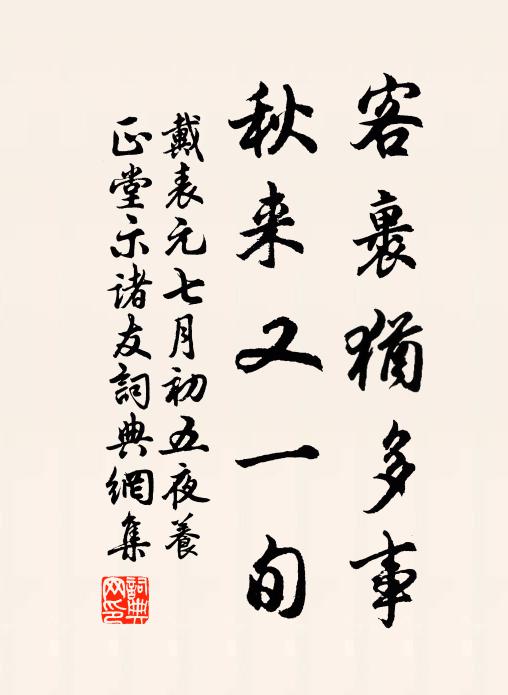 客裏猶多事
秋来又一旬
戴表元七月初五夜養
正堂示諸友詞典網集
詞典網印